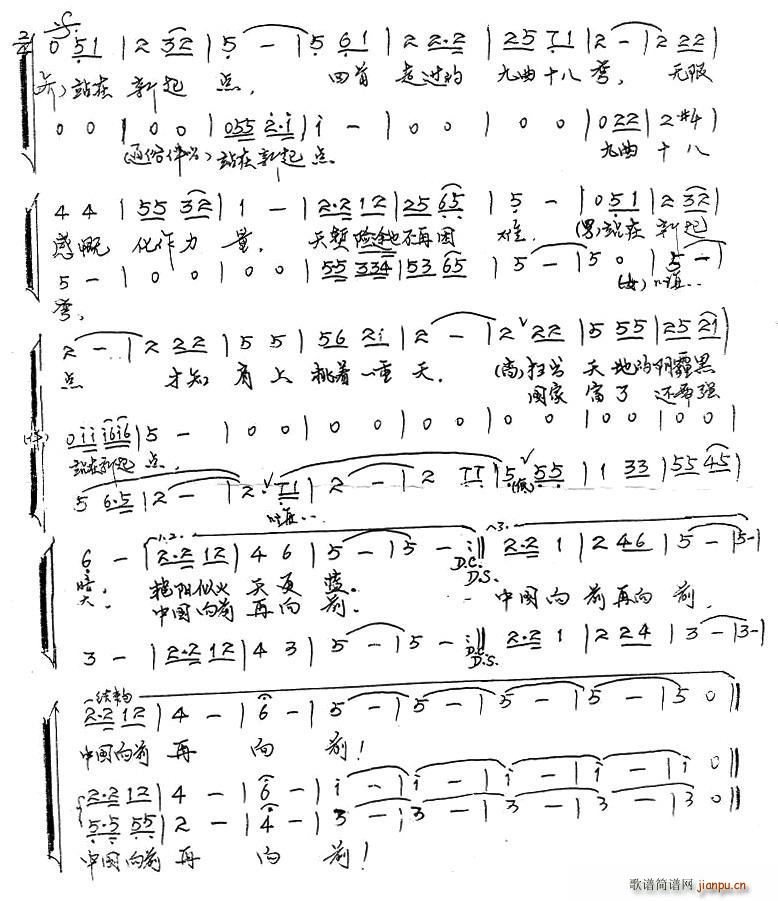 2/4 0 5 1 | 2 3 2 | 5 - | 5 6 1 | 2 2·2 | 2 5 7 1 | 2 - | 2 2 2 |
站在 新起 点, 回首 走过的 九曲十八 弯, 无限
0 0 | 0 0 | 0 5 5 2·i | i - | 0 0 | 0 0 | 0 2 2 | 2 #4 |
站在新起点 九曲 十 八
4 4 | 5 5 3 2 | 1 - | 2·2 1 2 | 2 5 6 5 | 5 - | 0 5 1 | 2 3 2 |
感慨 化作力 量, 天堑险途不再困 难. (男)站在 新起
5 - | 0 0 | 0 0 | 5 5 3 3 4 | 5 3 6 5 | 5 - | 5 0 | 5 - |
弯, (女)
2 - | 2 2 2 | 5 5 | 5 6 2 i | 2 - | 2 2 2 | 5 5 5 | 2 5 2 i |
点 才知 肩上 挑着一重天. (高)扫当 天地的阴霾黑
国家 富了 还要强
0 i i i 6 i 6 | 5 - | 0 0 | 0 0 | 0 0 | 0 0 | 0 0 | 0 0 |
站在新起 点,
5 6·5 | 2 - | 2· 7 1 | 2 - | 2 7 7 | 5 5 5 | 1 3 3 | 5 5 4 5 |
(低)
6 - | 1.2. 2·2 1 2 | 4 6 | 5 - | 5 - :|| 3. 2·2 1 | 2 4 6 | 5 - | 5 - |
D.C. D.S.
暗. 艳阳似火 天更 蓝. 中国向 前再向 前,
大. 中国向前 再向 前.
3 - | 2·2 1 2 | 4 3 | 5 - | 5 - :|| 2·2 1 | 2 2 4 | 3 - | 3 - |
D.C. D.S.
结束句
2·2 1 2 | 4 - | 6 - | 5 - | 5 - | 5 - | 5 - | 5 0 ||
中国向前 再 向 前!
2·2 1 2 | 4 - | 6 - | i - | i - | i - | i - | i 0 ||
5·5 5 5 | 2 - | 4 - | 3 - | 3 - | 3 - | 3 - | 3 0 ||
中国向前 再 向 前!
歌谱简谱网 jianpu.cn